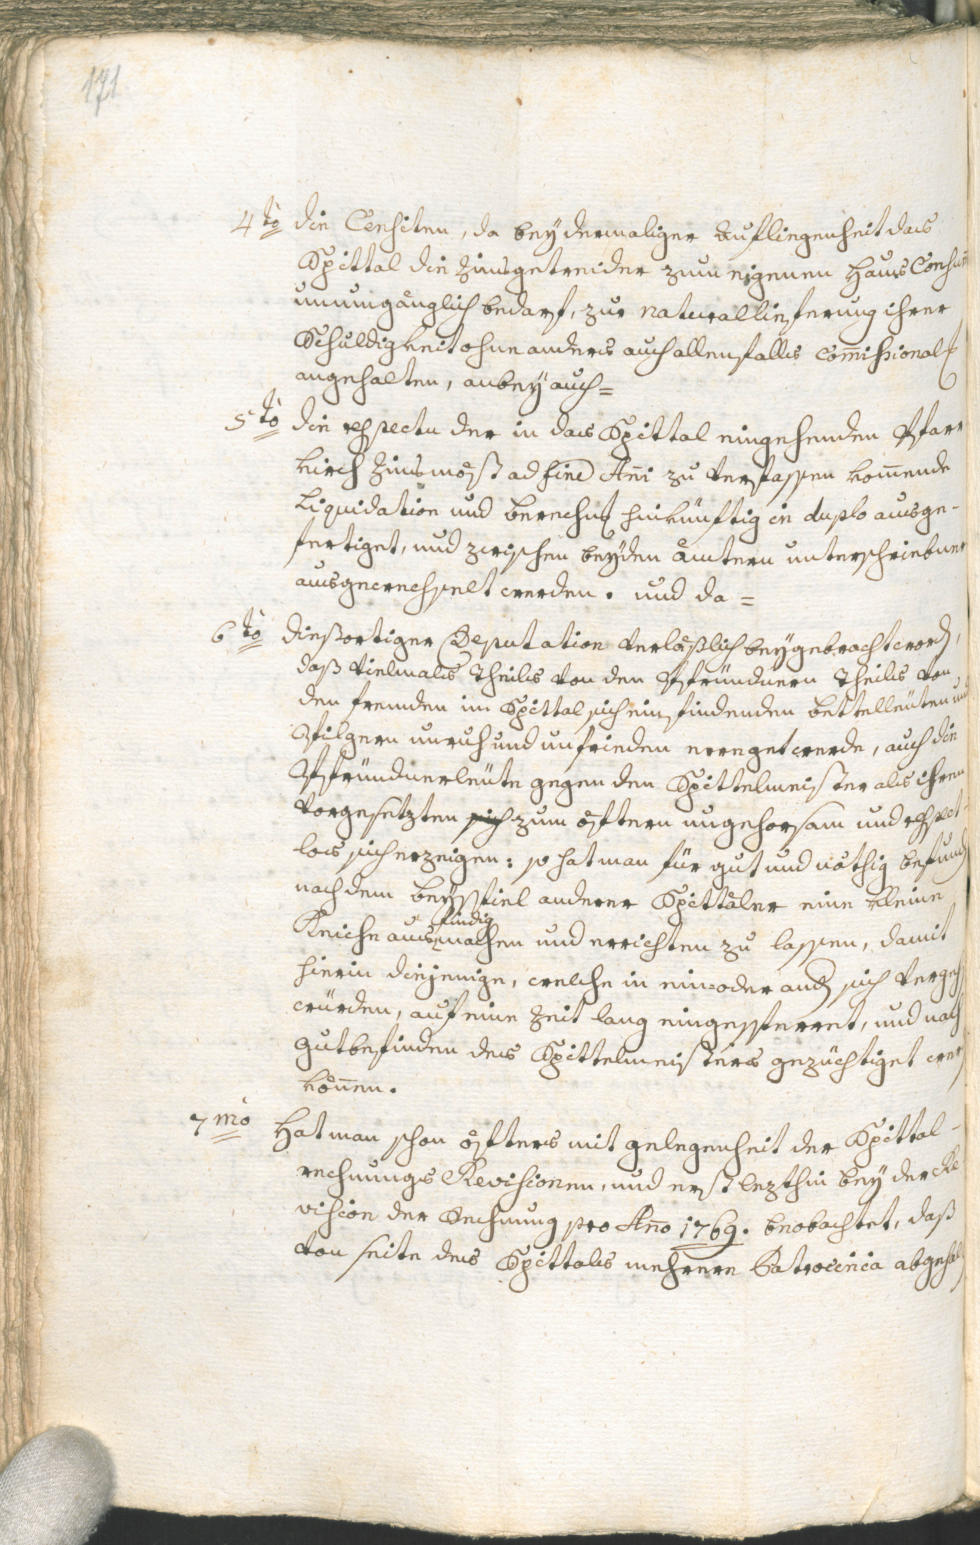 171
4to die Censiten, da bey dermaliger Aufliegenheit das
Spittal die Zinsgetreider zum eigenen Haus Consum̄
unumgänglich bedarf, zur naturallieferung ihrer
Schuldigkeit ohne anders auch allenfalls Comissional
angehalten, anbey auch=
5to die respectu der in das Spittal eingehenden Pfarr
kirch Zinsmößt ad fine Añi zu verfassen kom̄ende
Liquidation und berechn: hinkünftig in duplo ausge-
fertiget, und zwischen beyden ämtern unterschriebner
ausgewechselt werden. und da=
6to dießortiger Deputation verläßlich beygebracht word,
daß vielmals Theils von den Pfründnern Theils von
den fremden im Spittal sich einfindenden bettelleüten und
Pilgern unruh und unfrieden erreget werde, auch die
Pfründnerleüte gegen den Spittelmeister als ihren
Vorgesetzten sich zum öftern ungehorsam und respect-
los sich erzeigen: so hat man für gut und nöthig befund
nach dem beyspiel anderer Spittäler eine kleine
Keiche ausfindig machen und errichten zu lassen, damit
hierin diejenige, welche in ein- oder and sich vergeh
würden, auf eine Zeit lang eingesperret, und nach
gutbefinden des Spittelmeisters gezüchtiget wer
kön̄en.
7mo Hat man schon öfters mit gelegenheit der Spittal-
rechnungs Revisionen, und erst lezthin bey der Re
vision der Rechnung pro Año 1769. beobachtet, daß
von seite des Spittals mehrere Patrocinia abgehal